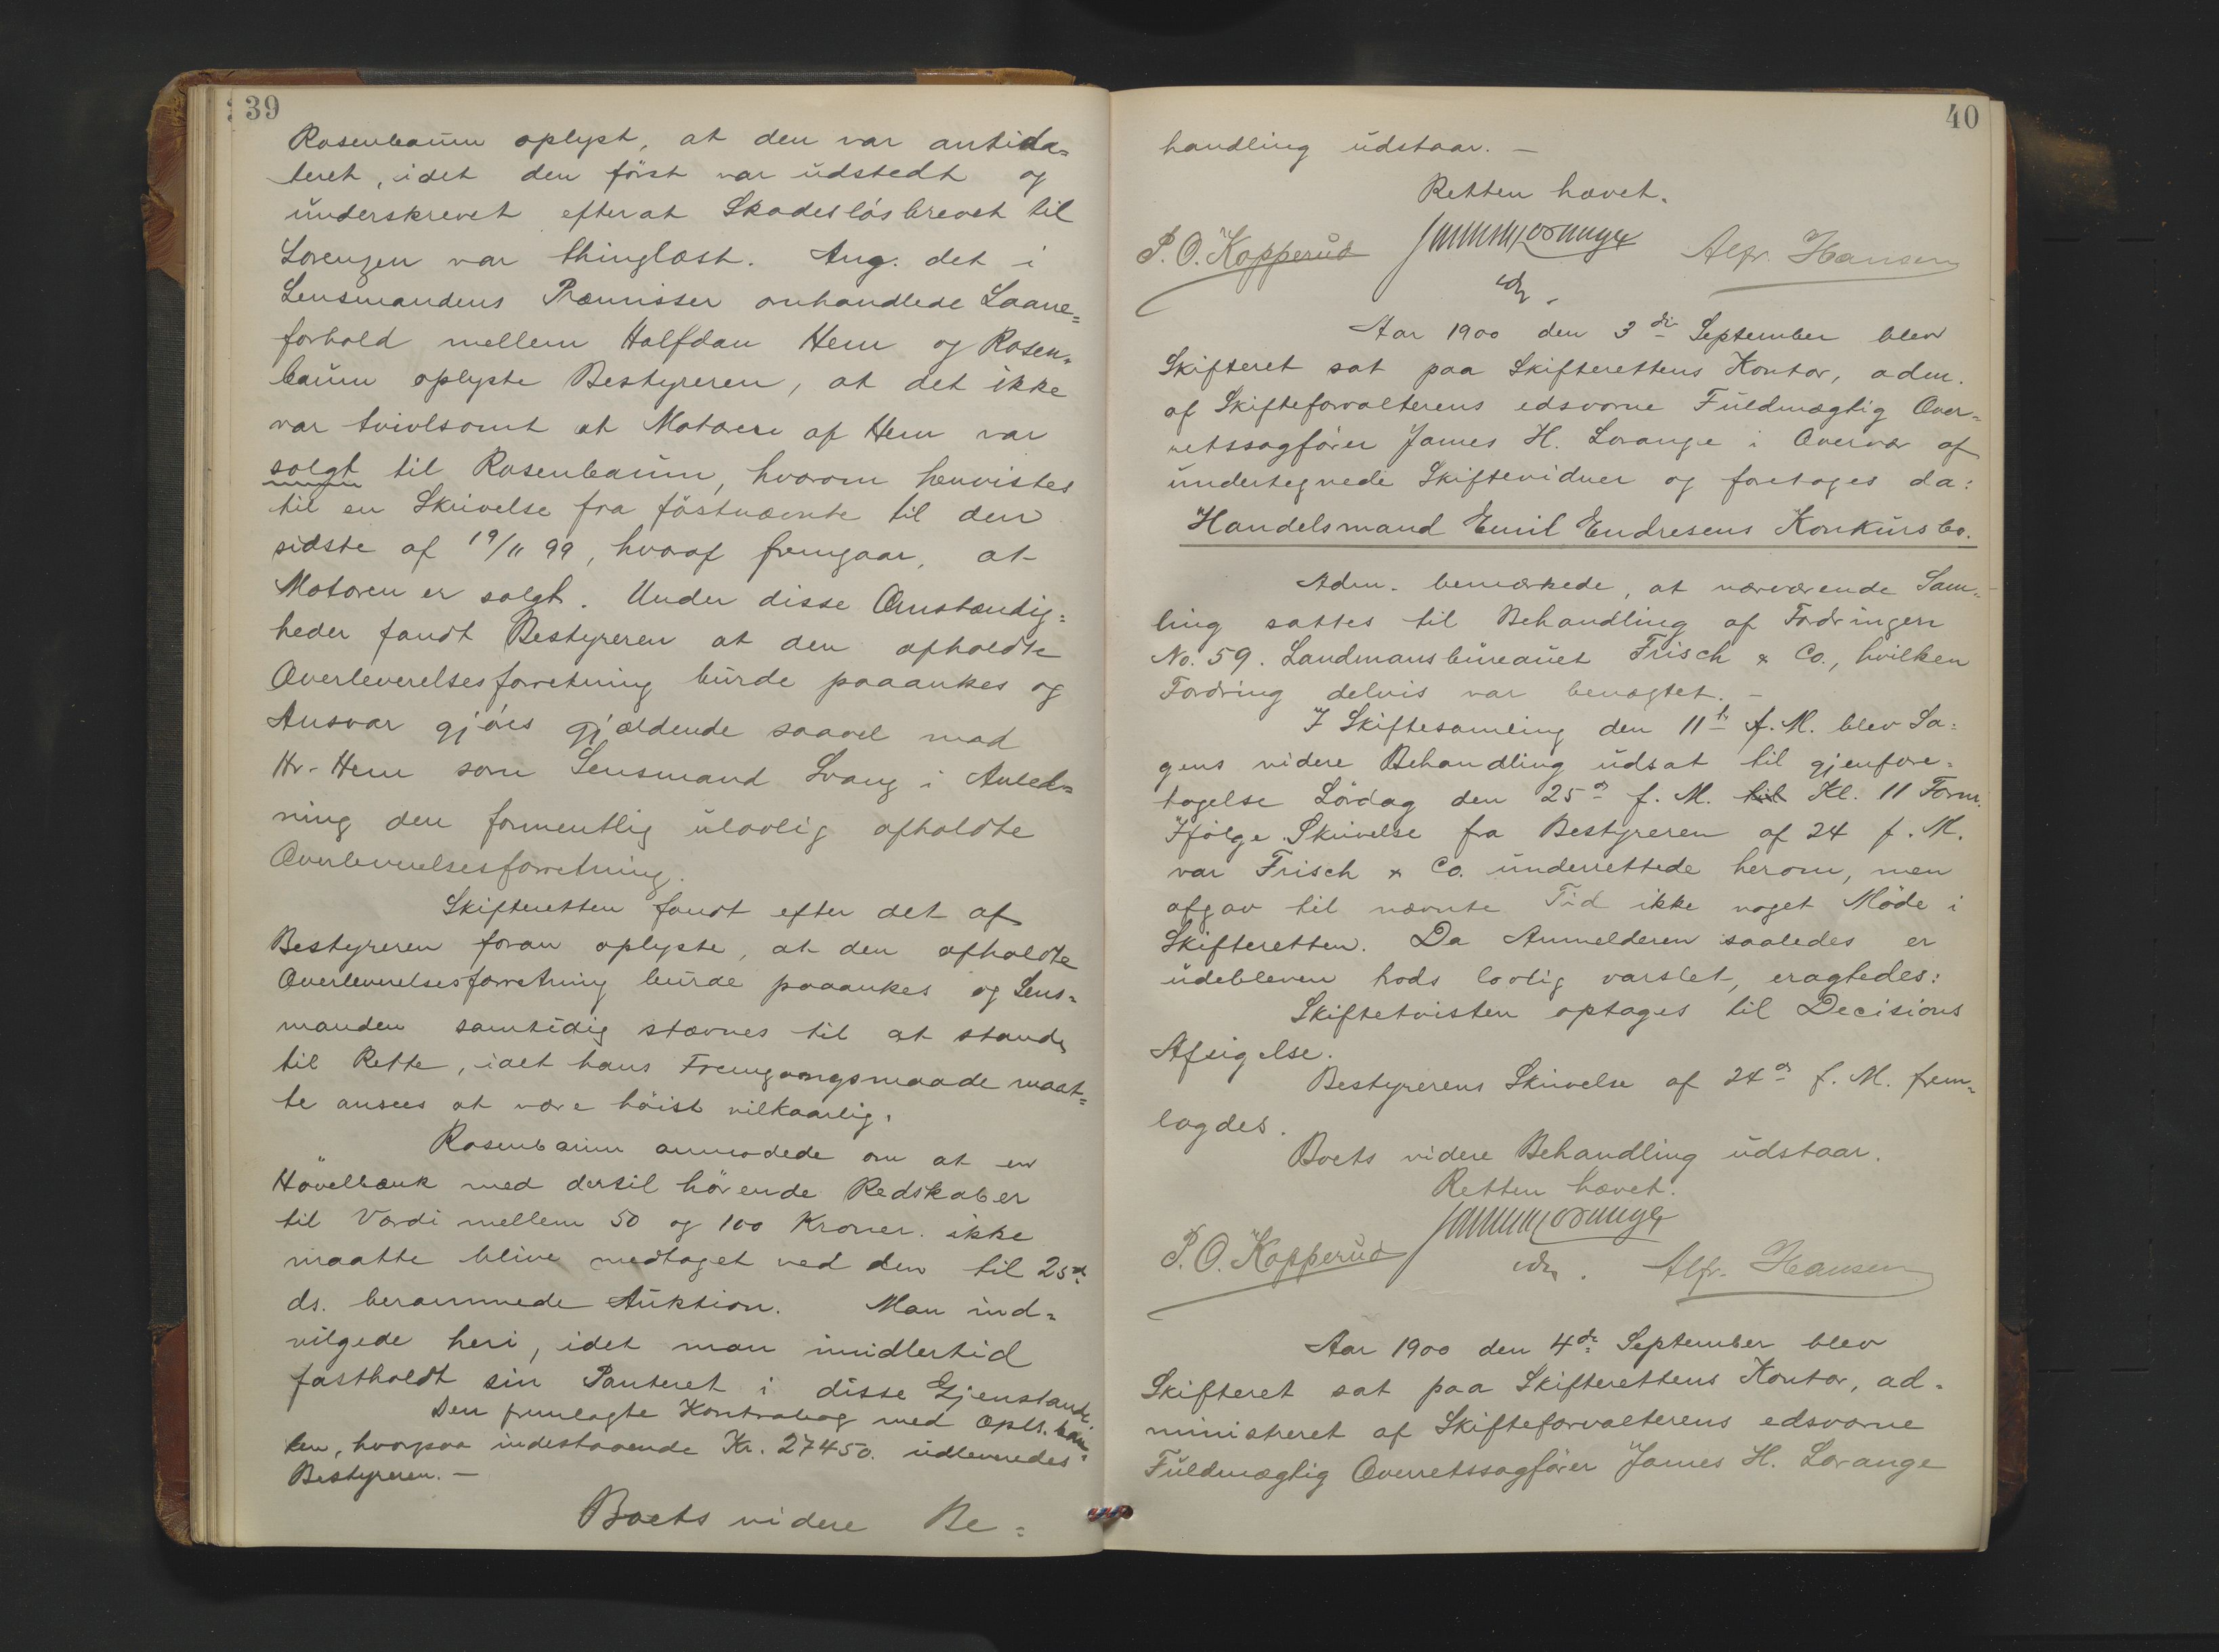 39
Rosenbaum oplyst, at den var antida=
teret, idet den först var udstedt og
underskrevet efterat Skadeslösbrevet til
Lorenzen var thinglæst. Ang. det i
Lensmandens Præmisser omhandlede Laane=
forhold mellem Halfdan Hem og Rosen=
baum oplyste Bestyreren, at det ikke
var tvivlsomt at Motoren af Hem var
solgt til Rosenbaum, hvorom henvistes
til en Skrivelse fra föstnævnte til den
sidste af 19/11 99, hvoraf fremgaar, at
Motoren er solgt. Under disse Omstændig=
heder fandt Bestyreren at den afholdte
Overleverelsesforretning burde paaankes og
Ansvar gjöres gjældende saavel mod
Hr. Hem som Lensmand Svang i Anled=
ning den formentlig ulovlig afholdte
Overleverelsesforretning.
Skifteretten fandt efter det af
Bestyreren foran oplyste, at den afholdte
Overleverelsesforretning burde paaankes og Lens=
manden samtidig stævnes til at stande
til Rette, idet hans Fremgangsmaade maat=
te ansees at være höist vilkaarlig.
Rosenbaum anmodede om at en
Hövelbænk med dertil hörende Redskaber
til Værdi mellem 50 og 100 Kroner. ikke
maatte blive medtaget ved den til 25de
ds. berammede Auktion. Man ind=
vilgede heri, idet man imidlertid
fastholdt sin Panteret i disse Gjenstande.
Den fremlagte Kontrabog med Opls. ban=
ken, hvorpaa indestaaende Kr. 27450. udleveredes
Bestyreren. —
Boets videre Be=
40
handling udstaar. —
Retten hævet.
P. O. Kopperud James Lorange Alfr. Hansen
edsv.
Aar 1900 den 3die September blev
Skifteret sat paa Skifterettens Kontor, adm.
af Skifteforvalterens edsvorne Fuldmægtig Over=
retssagförer James H. Lorange i Overvær af
undertegnede Skiftevidner og foretoges da:
Handelsmand Emil Endresens Konkursbo.
Adm. bemærkede, at nærværende Sam=
ling sattes til Behandling af Fordringen
No. 59. Landmansbureauet Frisch & Co., hvilken
Fordring delvis var benægtet. —
I Skiftesamling den 11te f. M. blev Sa=
gens videre Behandling udsat til gjenfore=
tagelse Lördag den 25de f. M. til Kl. 11 Form.
Ifölge Skrivelse fra Bestyreren af 24 f. M.
var Frisch & Co. underrettede herom, men
afgav til nævnte Tid ikke noget Möde i
Skifteretten. Da Anmelderen saaledes er
udebleven trods lovlig varslet, eragtedes:
Skiftetvisten optages til Decisions
Afsigelse.
Bestyrerens Skrivelse af 24de f. M. frem=
lagdes.
Boets videre Behandling udstaar.
Retten hævet.
P. O. Kopperud James Lorange
edsv. Alfr. Hansen
Aar 1900 den 4de September blev
Skifteret sat paa Skifterettens Kontor, ad=
ministreret af Skifteforvalterens edsvorne
Fuldmægtig Overretssagförer James H. Lorange